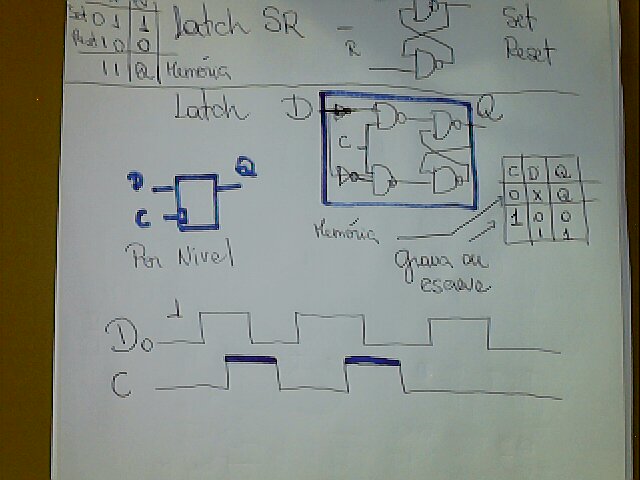 Set 0 1 1
Reset 1 0 0
1 1 Q Memória
Latch SR
R
Set
Reset
Latch D
Q
C
D
Q
C
Por Nível
Memória
Grava ou
escreve
C D Q
0 X Q
1 0 0
1 1
1
D 0
C